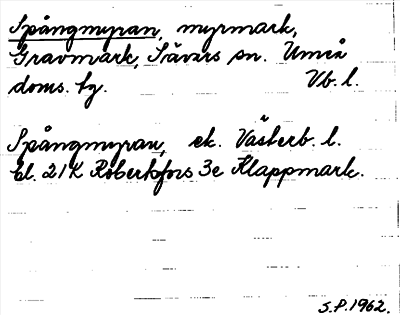 Spångmyran, myrmark,
Gravmark, Sävars sn. Umeå
doms. tg. Vb. l.
Spångmyran, ek. Västerb. l.
bl. 21K Robertsfors 3e Klappmark.
S.P. 1962.